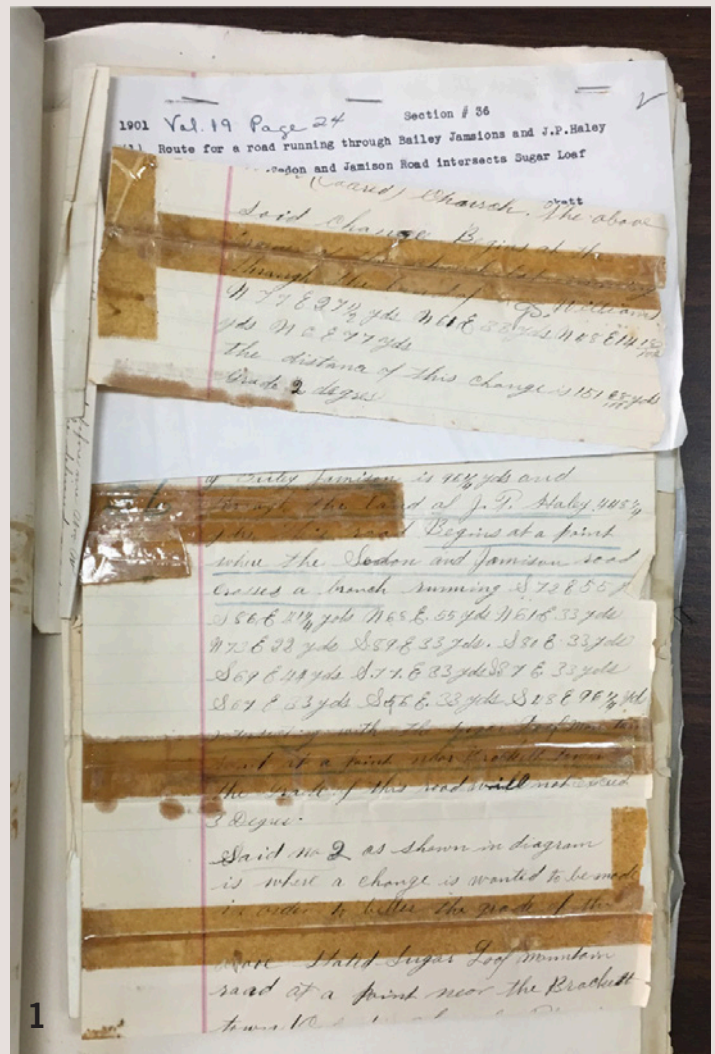 1901 Vol. 19 Page 24 Section # 36
Route for a road running through Bailey Jamsions and J.P.Haley
and Jamison Road intersects Sugar Loaf
Church. The above
said change Begins at the
through the land of Williams
N 77 E 27½ yds N 61 E 38 yds N 58 E 14
yds N 6 E 77 yds
the distance of this change is 151 yds
Grade 2 degres
of Bailey Jamison is 96¼ yds and
through the land of J. P. Haley 448¼
yds road Begins at a point
where the Sodon and Jamison road
crosses a branch running S 72 E 55 y
S 86 E 41¼ yds N 68 E. 55 yds N 61 E 33 yds
N 73 E 22 yds S 89 E 33 yds. S 80 E 33 yds
S 69 E 44 yds S 77. E 33 yds S 87 E. 33 yds
S 67 E 33 yds S 56 E. 33 yds S 48 E 96¼ yds
with the Sugar Loaf mountain
at a point near Brackett town
the grade of this road will not exceed
3 Degree.
Said no 2 as shown in diagram
is where a change is wanted to be made
in order to better the grade of the
above stated Sugar Loaf mountain
road at a point near the Brackett
town
1